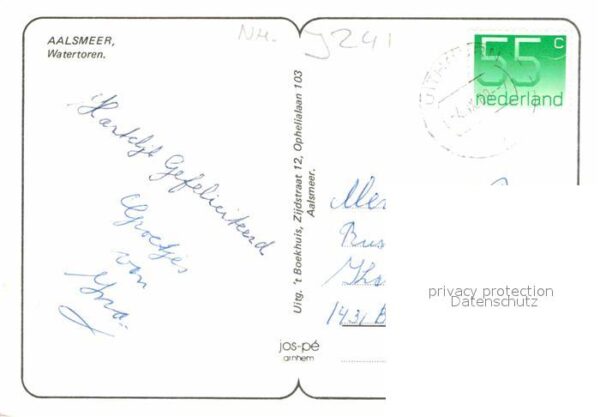 AALSMEER,
Watertoren.
Hartelijk Gefeliciteerd
Groetjes
van
Ina.
Uitg. 't Boekhuis, Zijdstraat 12, Ophelialaan 103
Aalsmeer.
jos-pé
arnhem
NH.
55 c
nederland
1431 B
privacy protection
Datenschutz